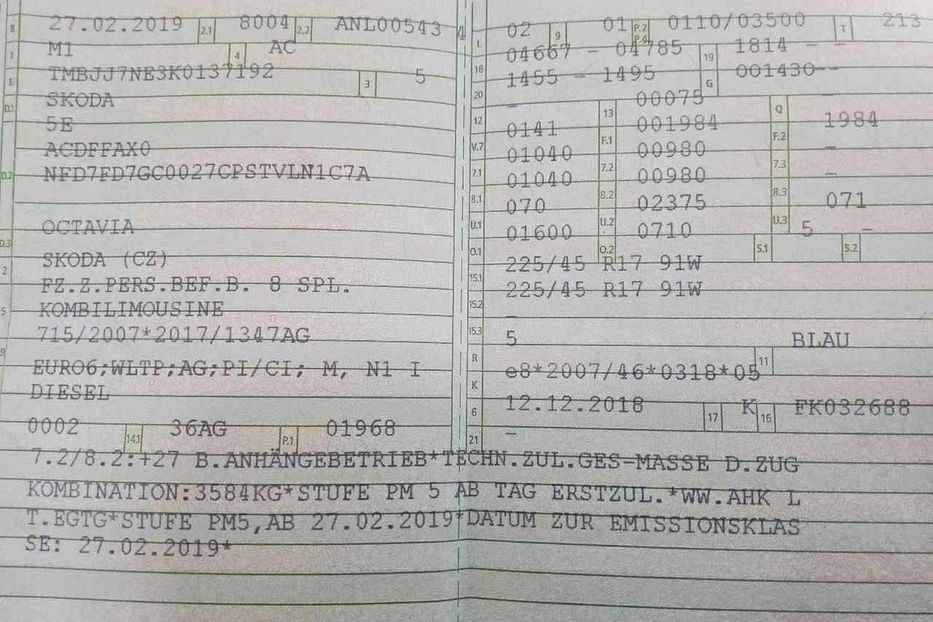 B 27.02.2019 2.1 8004 2.2 ANL00543
J M1 4 AC
E TMBJJ7NE3K0137192 3 5
D.1 SKODA
5E
ACDFFAX0
D.2 NFD7FD7GC0027CPSTVLN1C7A
D.3 OCTAVIA
2 SKODA (CZ)
FZ.Z.PERS.BEF.B. 8 SPL.
5 KOMBILIMOUSINE
715/2007*2017/1347AG
EURO6;WLTP;AG;PI/CI; M, N1 I
DIESEL
0002 14.1 36AG P.1 01968
L 02 9 01 P.2 P.4 0110/03500 T 213
18 04667 - 04785 19 1814 - -
20 1455 - 1495 G 001430--
12 - 13 00075 Q -
V.7 0141 F.1 001984 F.2 1984
7.1 01040 7.2 00980 7.3 -
8.1 01040 8.2 00980 8.3 -
U.1 070 U.2 02375 U.3 071
O.1 01600 O.2 0710 S.1 5 S.2 -
15.1 225/45 R17 91W
15.2 225/45 R17 91W
15.3 -
R 5 BLAU 11
K e8*2007/46*0318*05
6 12.12.2018 17 K 16 FK032688
21 -
7.2/8.2:+27 B.ANHÄNGEBETRIEB*TECHN.ZUL.GES-MASSE D.ZUG
KOMBINATION:3584KG*STUFE PM 5 AB TAG ERSTZUL.*WW.AHK L
T.EGTG*STUFE PM5,AB 27.02.2019*DATUM ZUR EMISSIONSKLAS
SE: 27.02.2019*